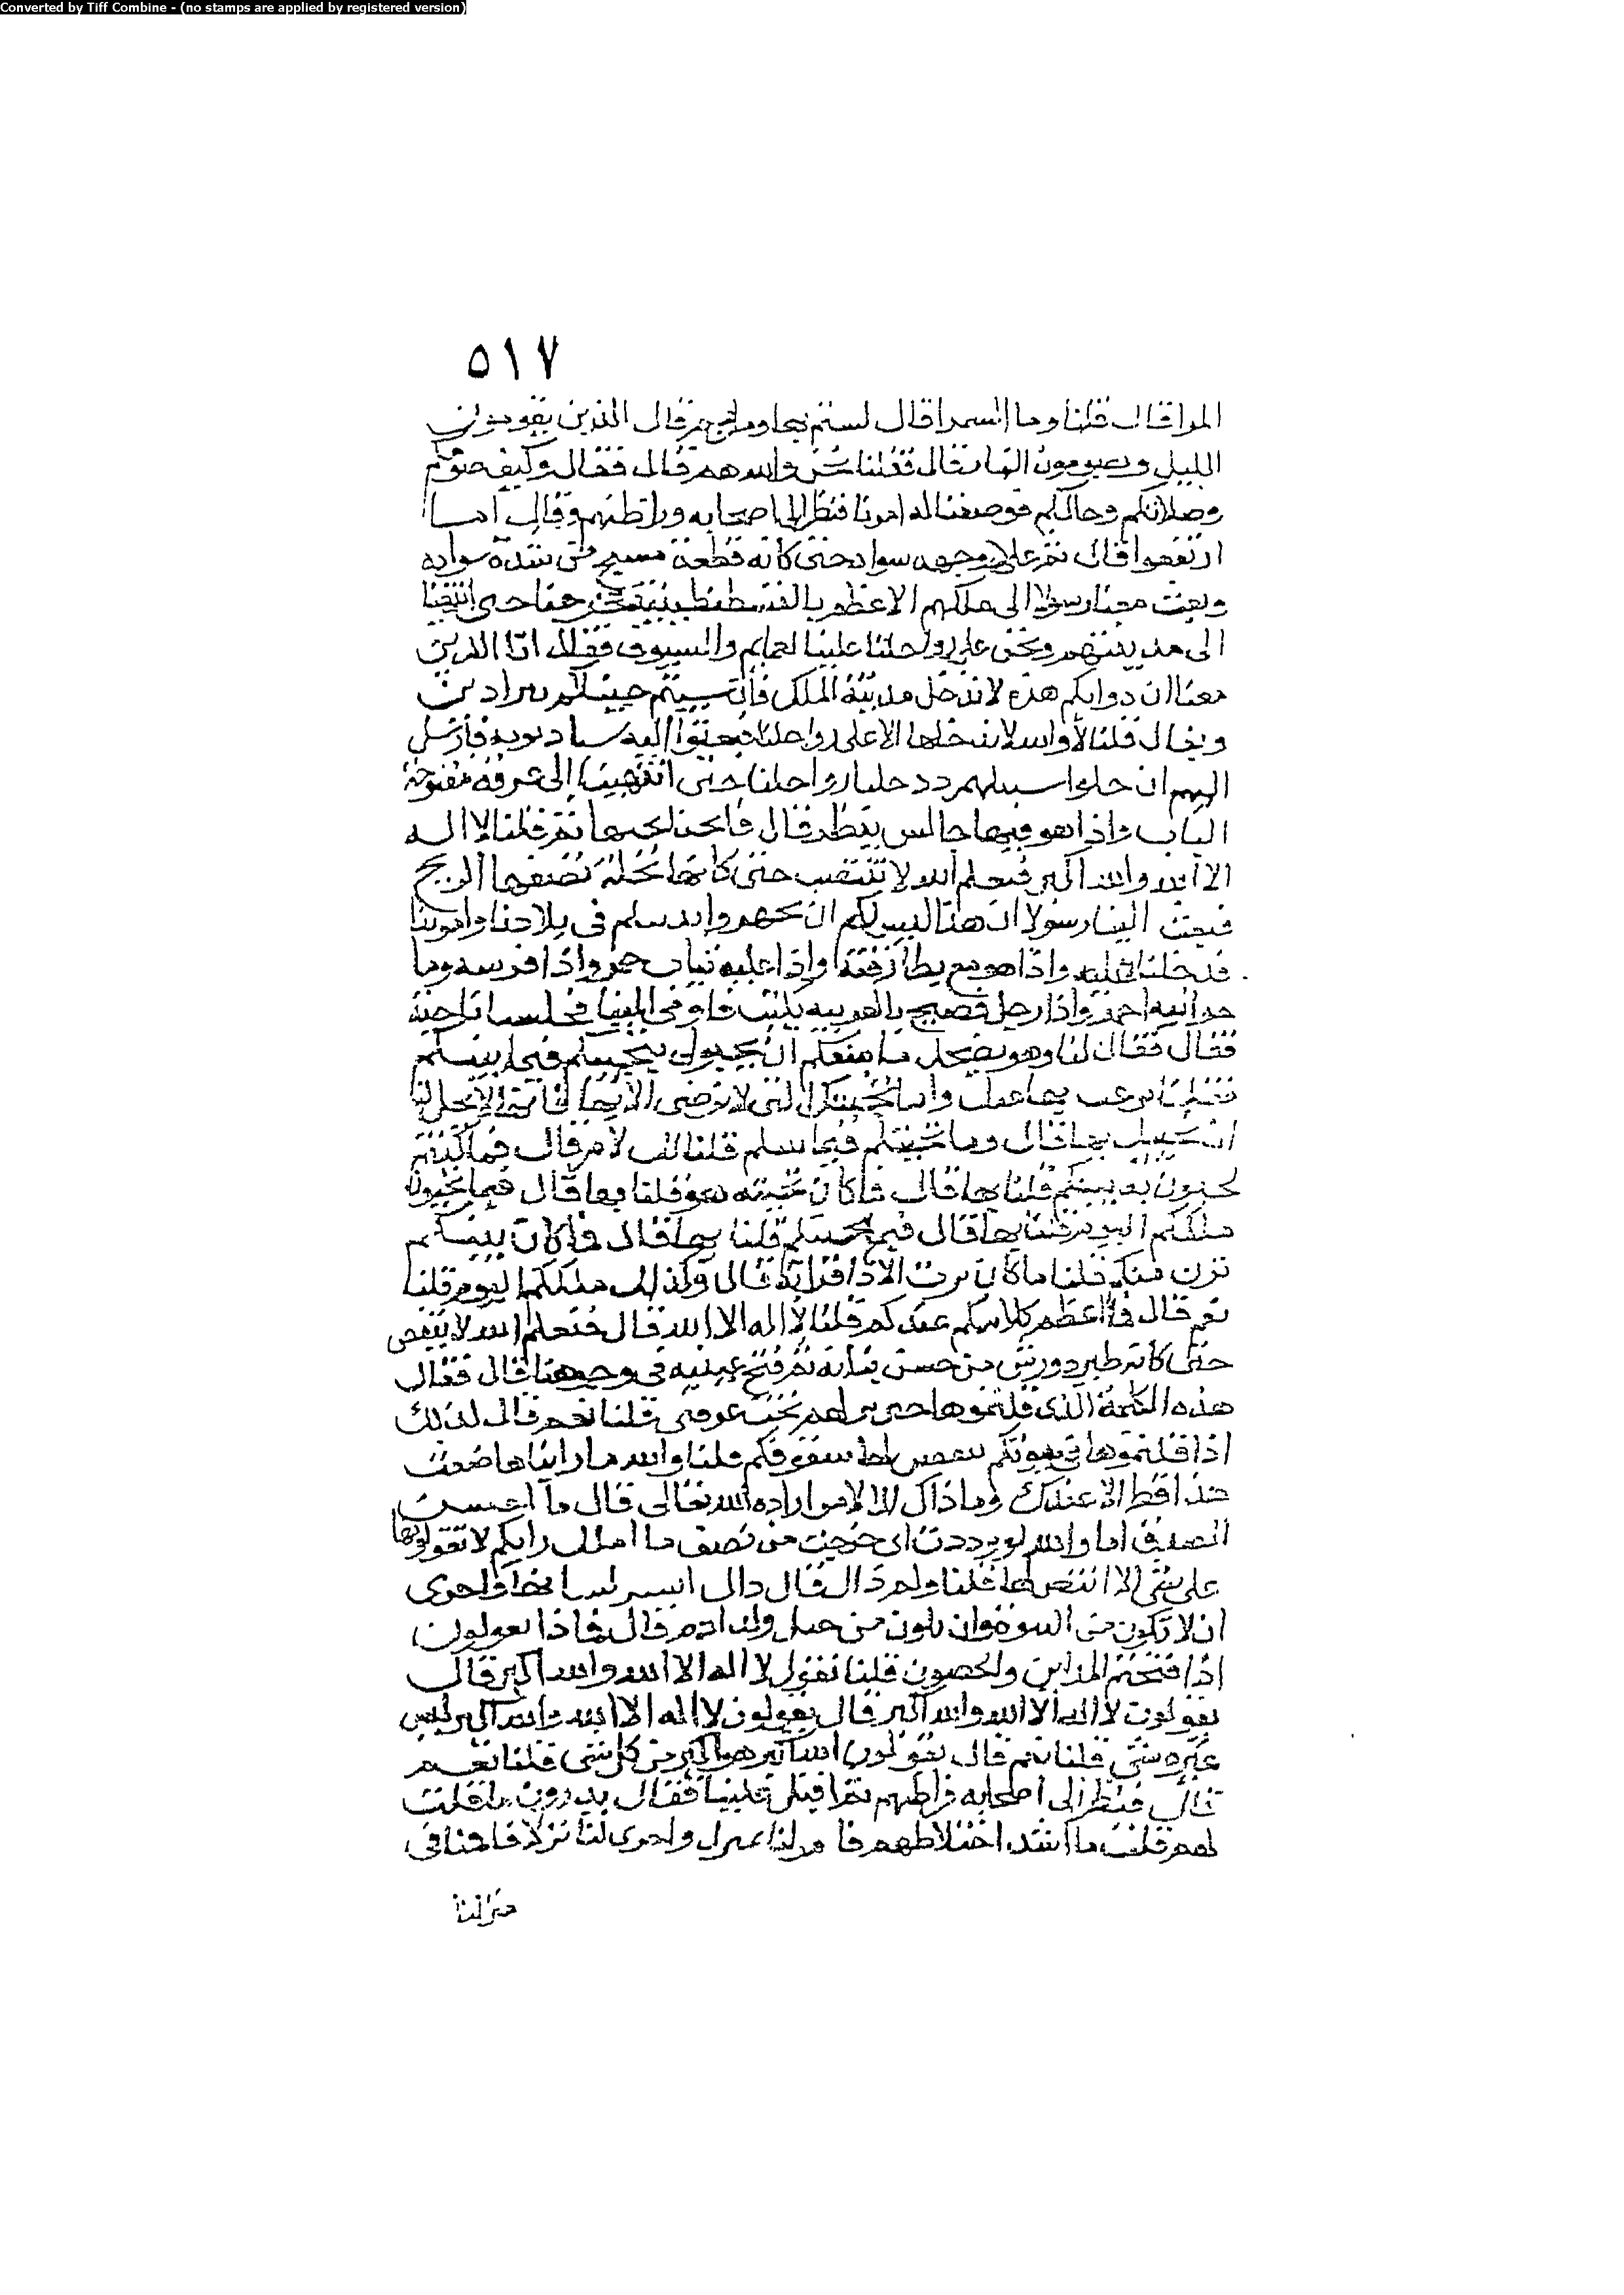 Converted by Tiff Combine - (no stamps are applied by registered version)
٥١٧
قال قلنا وما السمرا قال لستم بها ثم قال الذين يقومون
الليل ويصومون النهار قال فقلنا نحن والله هم قال فقال وكيف صومكم
وصلاتكم وحالكم فوصفنا له امرنا فنظر الى اصحابه وراطنهم وقال
ارتفعوا قال ثم علا وجهه سواد حتى كانه قطعة مسح من شدة سواده
وبعث معنا رسولا الى ملكهم الاعظم بالقسطنطينية فخرجنا حتى انتهينا
الى مدينتهم ونحن على رواحلنا علينا العمايم والسيوف فقال لنا الذين
معنا ان دوابكم هذه لا تدخل مدينة الملك فان شيتم جيناكم ببرادين
وبغال قلنا لا والله لا ندخلها الا على رواحلنا فبعثوا اليه فارسل
اليهم ان خلوا سبيلهم حتى انتهينا الى غرفة مفتوحة
الباب واذا هو فيها جالس ينظر قال ثم قلنا لا اله
الا الله والله اكبر فيعلم الله لا حتى كانها نخلة تصفقها الريح
فبعث الينا رسولا ان هذا ليس لكم ان في بلادنا وامر بنا
فدخلنا عليه واذا هو مع بطارقته واذا عليه ثياب حمر واذا فرشه وما
حواليه احمر واذا رجل فصيح بالعربية يكتب فاومى الينا فجلسنا ناحية
فقال فقال لنا وهو يضحك ما منعكم ان تحيوني بتحيتكم فيما بينكم
فقلنا بها عنك واما تحيتك التي لا ترضى الا بها فانه لا يحل لنا
ان نحييك بها قال وما تحيتكم فيما بينكم قلنا السلام قال فما كنتم
تحيون به نبيكم قلنا بها قال فما كان تحيته هو قلنا بها قال فبم تحيون
ملككم اليوم قلنا بها قال فبم يحييكم قلنا بها قال فما كان نبيكم
يرث منكم قلنا ما كان يرث الا ذا قرابة قال وكذلك ملككم اليوم قلنا
نعم قال فما اعظم كلامكم عندكم قلنا لا اله الا الله قال فيعلم الله لا ينتفض
حتى كانه طير ذو ريش من حسن ثيابه ثم فتح عينيه في وجوهنا قال فقال
هذه الكلمة الذي قلتموها حين نزلتم تحت غرفتي قلنا نعم قال كذلك
اذا قلتموها في بيوتكم سقوفكم قلنا والله ما رايناها صنعت
هذا قط الا عندك وما ذاك الا لامر اراده الله تعالى قال ما احسن
الصدق اما والله لوددت اني خرجت من نصف ما املك وانكم لا تقولونها
على شي الا انتفض لها قلنا ولم ذاك قال ذاك ايسر لشانها واحرى
ان لا تكون من النبوة وان تكون من حيل ولد ادم قال فماذا تقولون
اذا فتحتم المداين والحصون قلنا نقول لا اله الا الله والله اكبر قال
تقولون لا اله الا الله والله اكبر قال تقولون لا اله الا الله والله اكبر ليس
غيره شي قلنا نعم قال تقولون الله اكبر هو اكبر من كل شي قلنا نعم
قال فنظر الى اصحابه فراطنهم ثم اقبل علينا فقال تدرون ما قلت
لهم قلت ما اشد اختلاطهم فامر لنا بمنزل واجرى لنا نزلا فاقمنا في
منزلنا